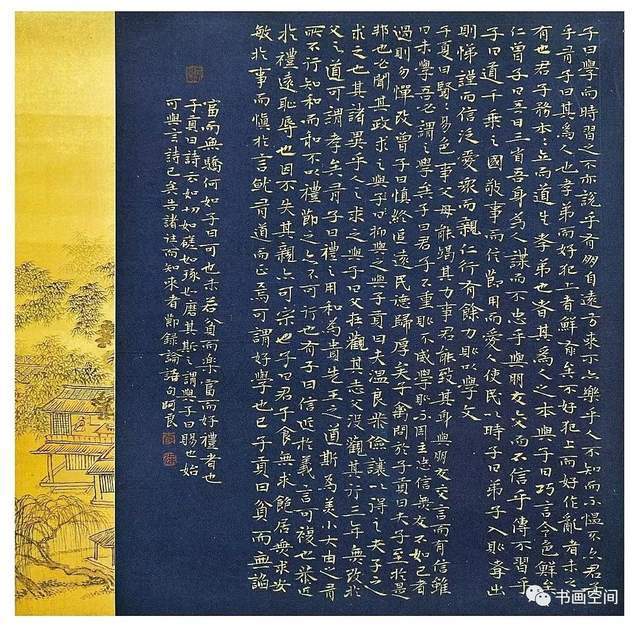 子曰學而時習之不亦說乎有朋自遠方來不亦樂乎人不知而不慍不亦君子
乎有子曰其為人也孝弟而好犯上者鮮矣不好犯上而好作亂者未之
有也君子務本本立而道生孝弟也者其為人之本與子曰巧言令色鮮矣
仁曾子曰吾日三省吾身為人謀而不忠乎與朋友交而不信乎傳不習乎
子曰道千乘之國敬事而信節用而愛人使民以時子曰弟子入則孝出
則悌謹而信泛愛眾而親仁行有餘力則以學文
子夏曰賢賢易色事父母能竭其力事君能致其身與朋友交言而有信雖
曰未學吾必謂之學矣子曰君子不重則不威學則不固主忠信無友不如己者
過則勿憚改曾子曰慎終追遠民德歸厚矣子禽問於子貢曰夫子至於是
邦也必聞其政求之與子曰抑與之與子貢曰夫溫良恭儉讓以得之夫子之
求之也其諸異乎人之求之與子曰父在觀其志父沒觀其行三年無改於
父之道可謂孝矣有子曰禮之用和為貴先王之道斯為美小大由之有
所不行知和而和不以禮節之亦不可行也有子曰信近於義言可復也恭近
於禮遠恥辱也因不失其親亦可宗也子曰君子食無求飽居無求安
敏於事而慎於言就有道而正焉可謂好學也已子貢曰貧而無諂
富而無驕何如子曰可也未若貧而樂富而好禮者也
子貢曰詩云如切如磋如琢如磨其斯之謂與子曰賜也始
可與言詩已矣告諸往而知來者 節錄論語句 阿良
书画空间